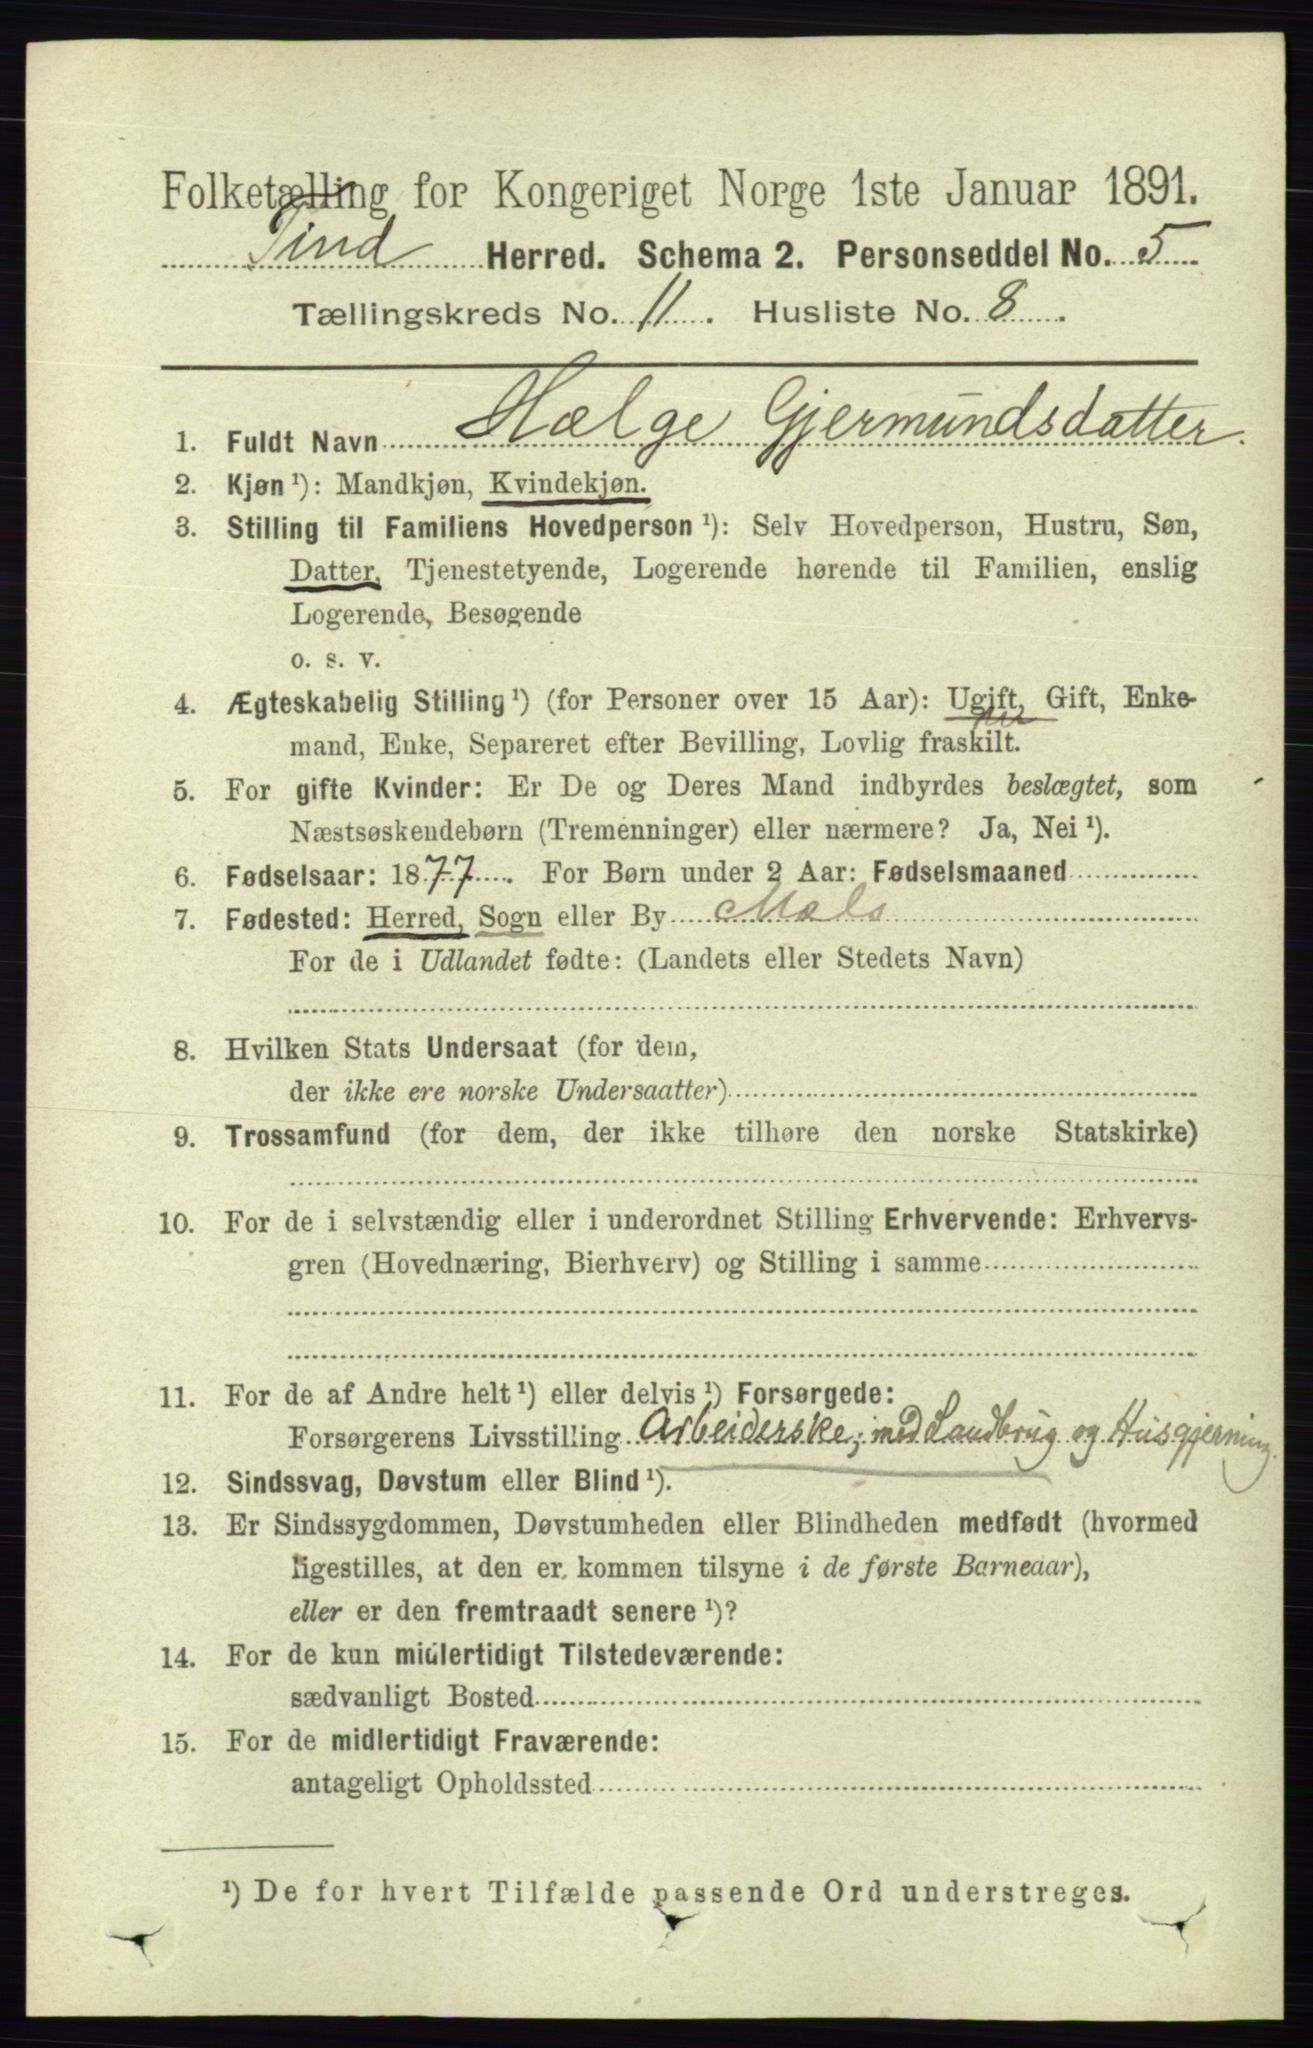 Folketælling for Kongeriget Norge 1ste Januar 1891.
Tind Herred. Schema 2. Personseddel No. 5
Tællingskreds No. 11. Husliste No. 8.
1. Fuldt Navn Hælge Gjermundsdatter.
2. Kjøn ¹): Mandkjøn, Kvindekjøn.
3. Stilling til Familiens Hovedperson ¹): Selv Hovedperson, Hustru, Søn,
Datter, Tjenestetyende, Logerende hørende til Familien, enslig
Logerende, Besøgende
o. s. v.
4. Ægteskabelig Stilling ¹) (for Personer over 15 Aar): Ugift, Gift, Enke-
mand, Enke, Separeret efter Bevilling, Lovlig fraskilt.
5. For gifte Kvinder: Er De og Deres Mand indbyrdes beslægtet, som
Næstsøskendebørn (Tremenninger) eller nærmere? Ja, Nei ¹).
6. Fødselsaar: 1877. For Børn under 2 Aar: Fødselsmaaned
7. Fødested: Herred, Sogn eller By Mæls
For de i Udlandet fødte: (Landets eller Stedets Navn)
8. Hvilken Stats Undersaat (for dem,
der ikke ere norske Undersaatter)
9. Trossamfund (for dem, der ikke tilhøre den norske Statskirke)
10. For de i selvstændig eller i underordnet Stilling Erhvervende: Erhvervs-
gren (Hovednæring, Bierhverv) og Stilling i samme
11. For de af Andre helt ¹) eller delvis ¹) Forsørgede:
Forsørgerens Livsstilling Arbeiderske; med Landbrug og Husgjerning.
12. Sindssvag, Døvstum eller Blind ¹).
13. Er Sindssygdommen, Døvstumheden eller Blindheden medfødt (hvormed
ligestilles, at den er kommen tilsyne i de første Barneaar),
eller er den fremtraadt senere ¹)?
14. For de kun midlertidigt Tilstedeværende:
sædvanligt Bosted
15. For de midlertidigt Fraværende:
antageligt Opholdssted
¹) De for hvert Tilfælde passende Ord understreges.